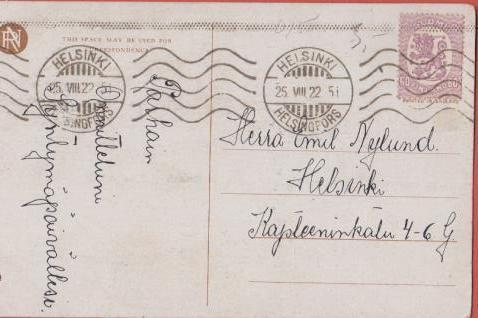 THIS SPACE MAY BE USED FOR
CORRESPONDENCE
HELSINKI
25. VIII. 22
HELSINGFORS
HELSINKI
25. VIII. 22 5 i
HELSINGFORS
SUOMI
60 60
Parhain
Onnitteluni
Syntymäpäivällesi.
Herra Emil Nylund.
Helsinki
Kapteeninkatu 4-6 G